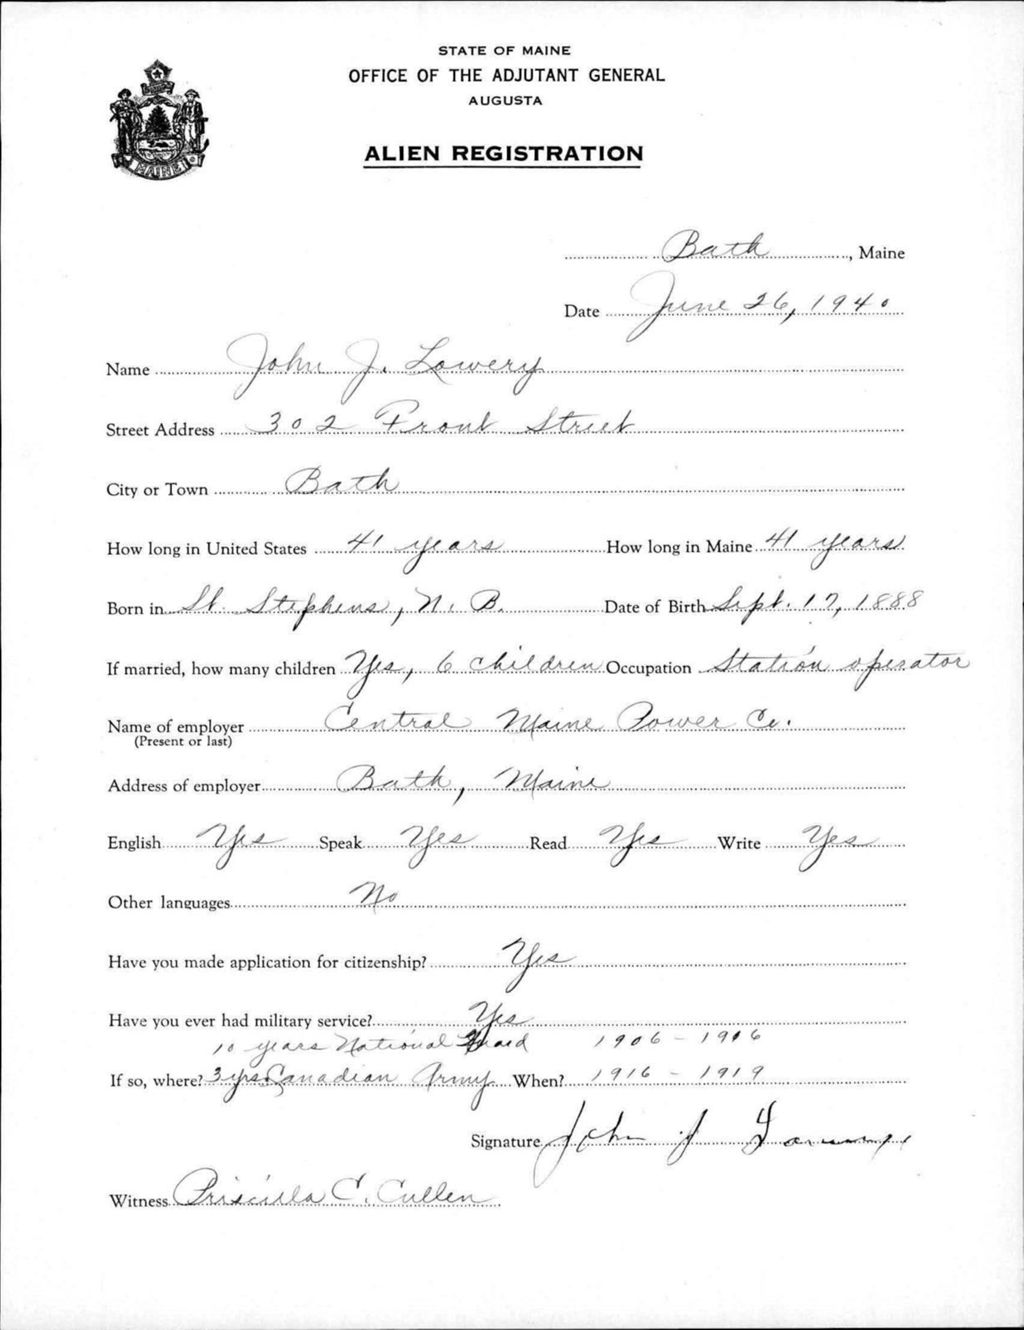 STATE OF MAINE
OFFICE OF THE ADJUTANT GENERAL
AUGUSTA
ALIEN REGISTRATION
MAINE
Bath, Maine
Date June 26, 1940
Name John J. Lowery
Street Address 302 Front Street
City or Town Bath
How long in United States 41 years How long in Maine 41 years
Born in St. Stephens, N. B. Date of Birth Sept. 17, 1888
If married, how many children Yes, 6 children Occupation Station operator
Name of employer Central Maine Power Co.
(Present or last)
Address of employer Bath, Maine
English Yes Speak Yes Read Yes Write Yes
Other languages No
Have you made application for citizenship? Yes
Have you ever had military service? Yes
10 years National Guard 1906 - 1916
If so, where? 3 yrs Canadian Army When? 1916 - 1919
Signature John J Lowery
Witness Priscilla C. Cullen